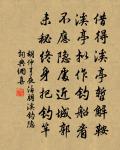 借得溪亭暫解鞍
溪亭枉作釣船看
不應隱處近城郭
未秘終身把釣竿
胡仲弓夜泊朋溪釣隱
詞典網喜